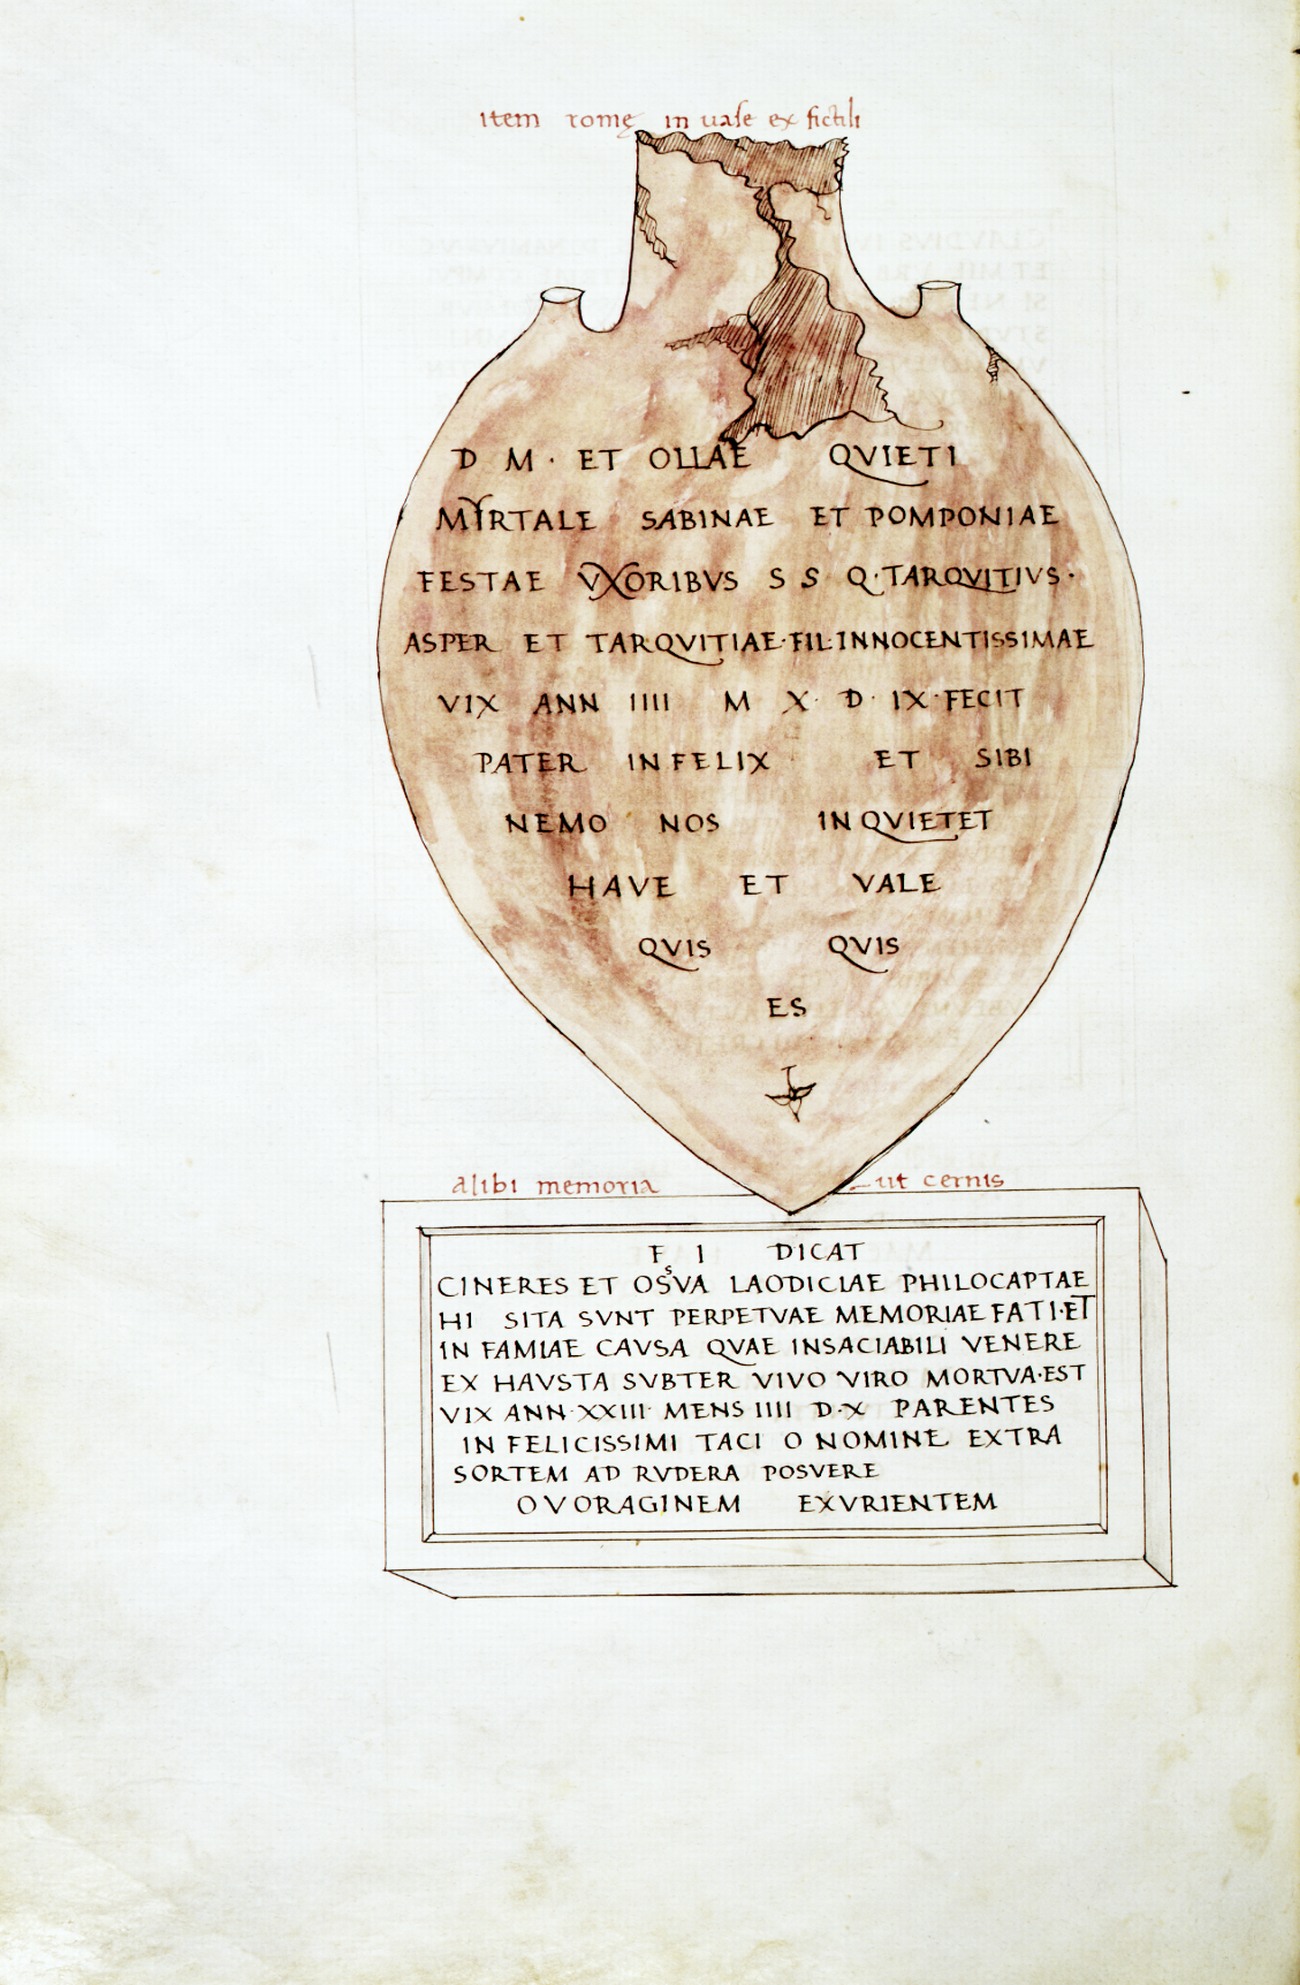 item romę in uase ex fictili
D M · ET OLLAE QVIETI
MYRTALE SABINAE ET POMPONIAE
FESTAE VXORIBVS S S Q·TARQVITIVS·
ASPER ET TARQVITIAE·FIL·INNOCENTISSIMAE
VIX ANN IIII M X· D· IX·FECIT
PATER INFELIX ET SIBI
NEMO NOS INQVIETET
HAVE ET VALE
QVIS QVIS
ES
alibi memoria ut cernis
F I DICAT
CINERES ET OSsVA LAODICIAE PHILOCAPTAE
HI SITA SVNT PERPETVAE MEMORIAE FATI·ET
IN FAMIAE CAVSA QVAE INSACIABILI VENERE
EX HAVSTA SVBTER VIVO VIRO MORTVA·EST
VIX ANN·XXIII· MENS IIII D·X PARENTES
IN FELICISSIMI TACI O NOMINE EXTRA
SORTEM AD RVDERA POSVERE
O VORAGINEM EXVRIENTEM